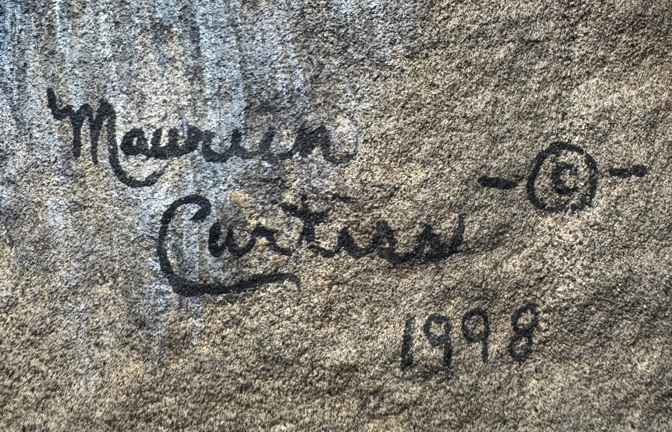 Maurien
Curtiss -©-
1998